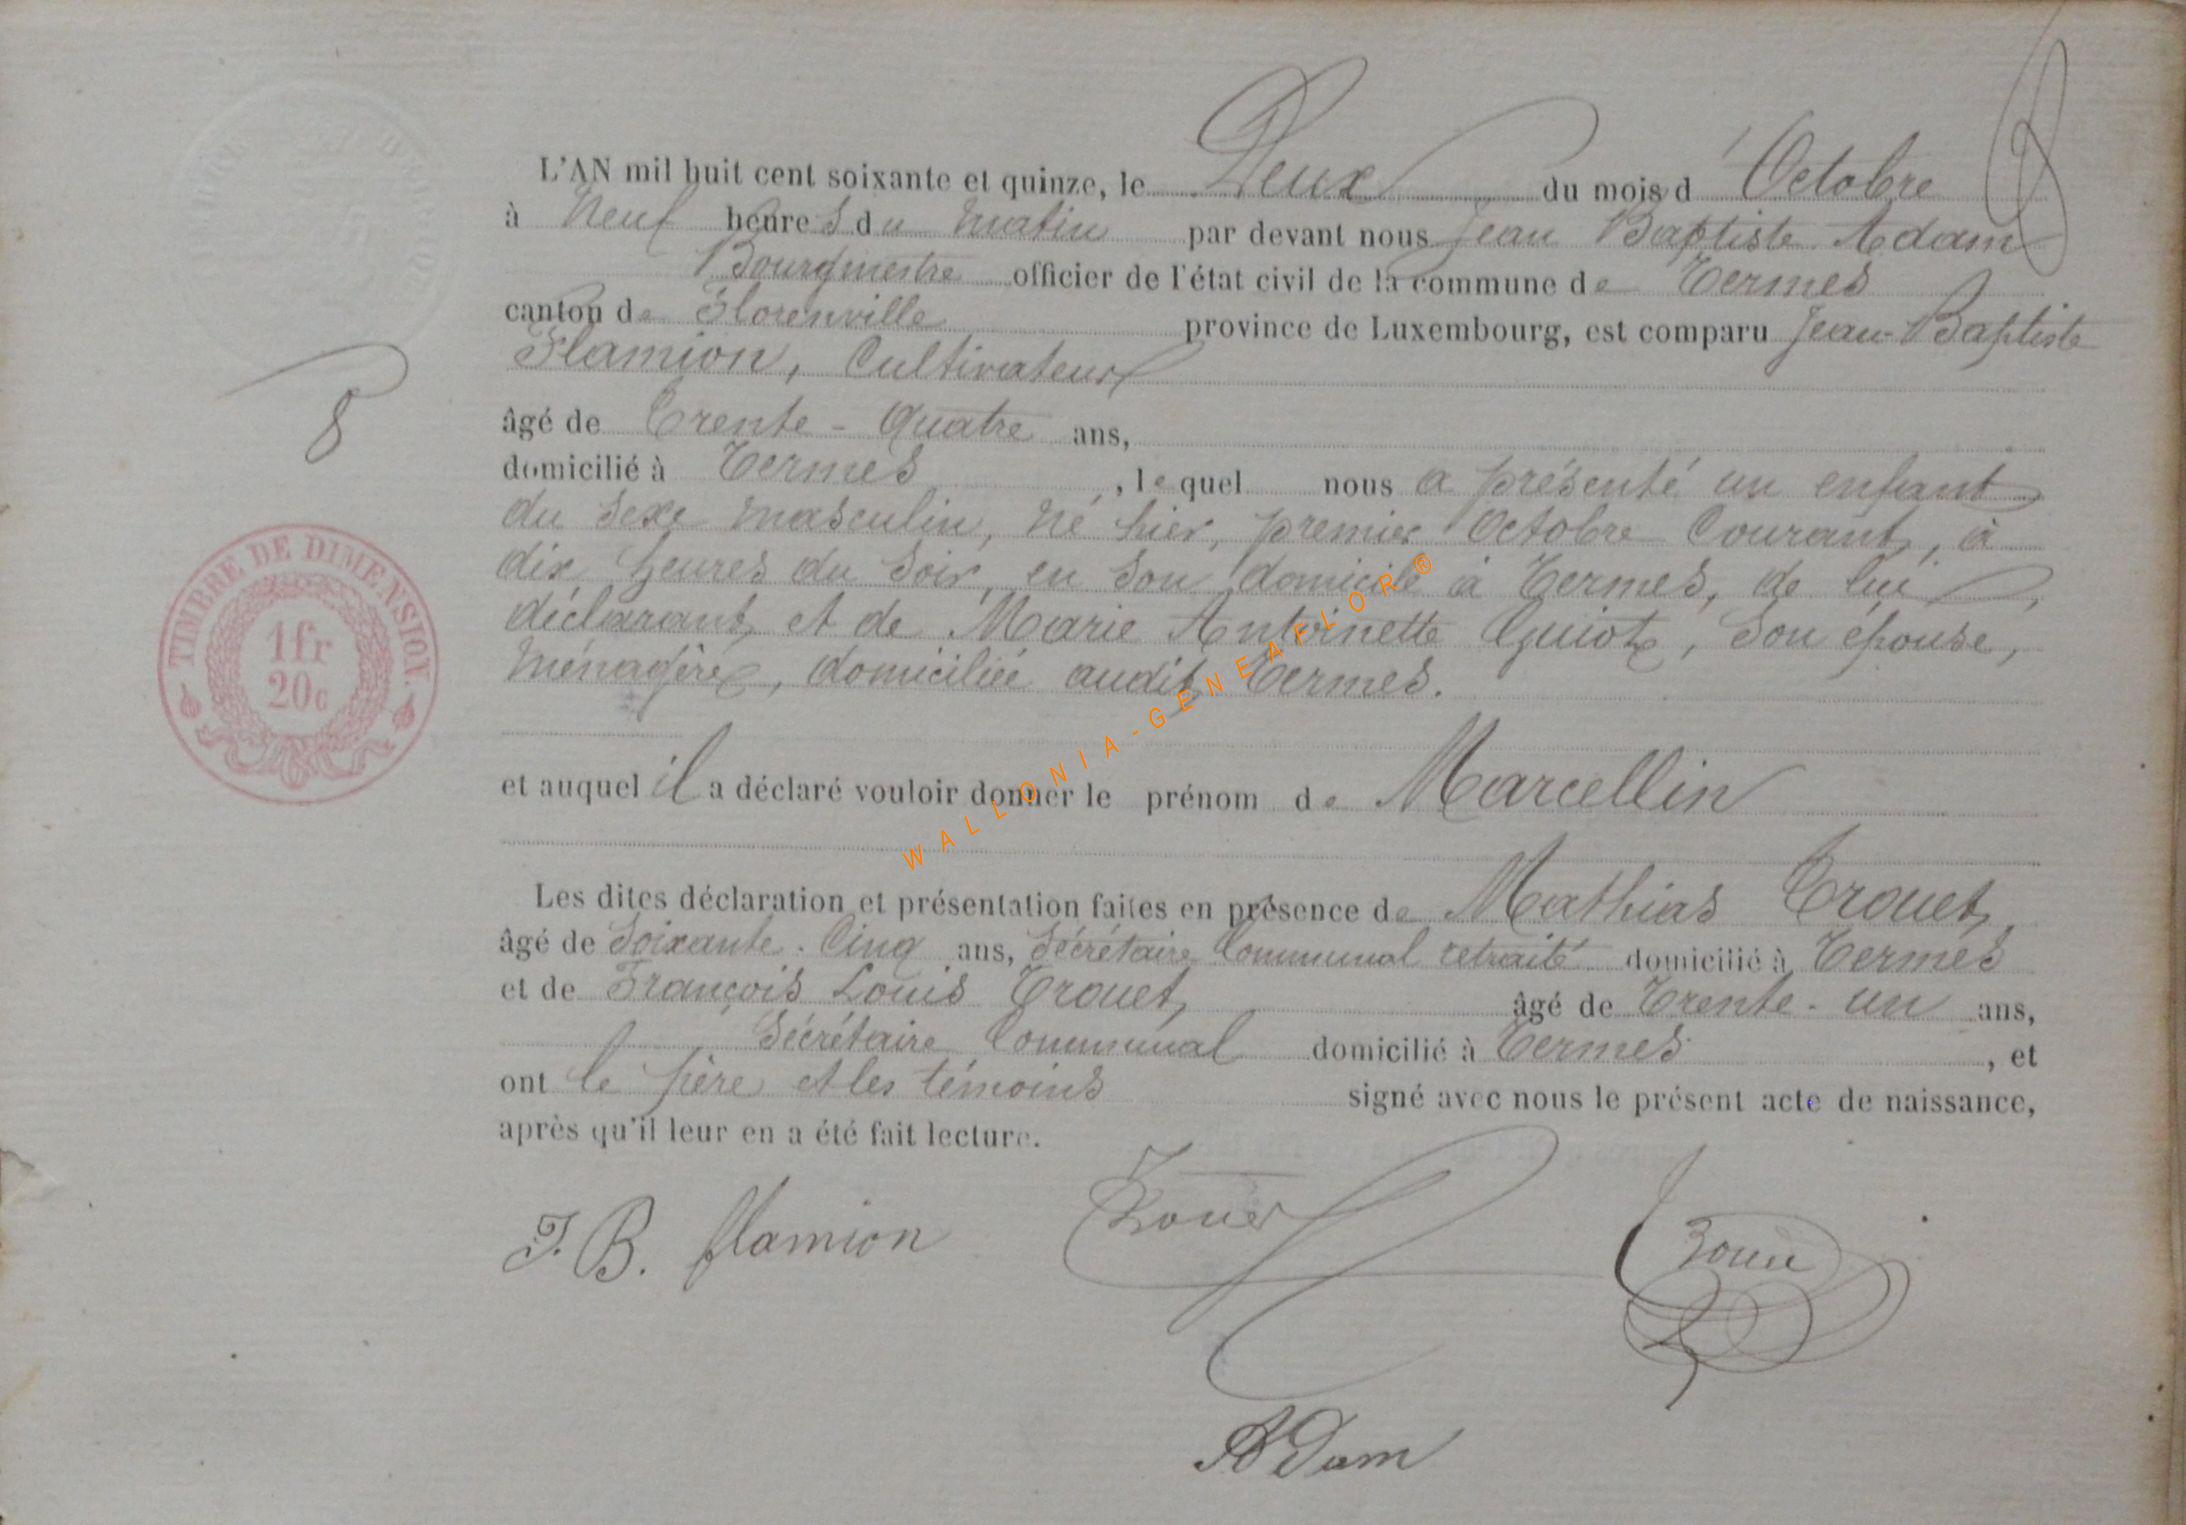 L'AN mil huit cent soixante et quinze, le Deux du mois d'Octobre
à Neuf heures du matin par devant nous Jean Baptiste Adam
Bourgmestre officier de l'état civil de la commune de Termes
canton de Florenville province de Luxembourg, est comparu Jean-Baptiste
Flamion, Cultivateur
âgé de Trente-Quatre ans,
domicilié à Termes, lequel nous a présenté un enfant
du sexe masculin, né hier, premier Octobre Courant, à
dix heures du soir, en son domicile à Termes, de lui
déclarant, et de Marie Antoinette Guiot, son épouse,
ménagère, domiciliée audit Termes.
et auquel il a déclaré vouloir donner le prénom de Marcellin
Les dites déclaration et présentation faites en présence de Mathias Trouet,
âgé de Soixante-Cinq ans, Sécrétaire Communal retraité domicilié à Termes
et de François Louis Trouet, âgé de Trente-un ans,
Sécrétaire Communal domicilié à Termes, et
ont le père et les témoins signé avec nous le présent acte de naissance,
après qu'il leur en a été fait lecture.
J. B. flamion
Trouet
Trouet
ADam
8
TIMBRE DE DIMENSION
1fr
20c
WALLONIA-GENEAFLOR®